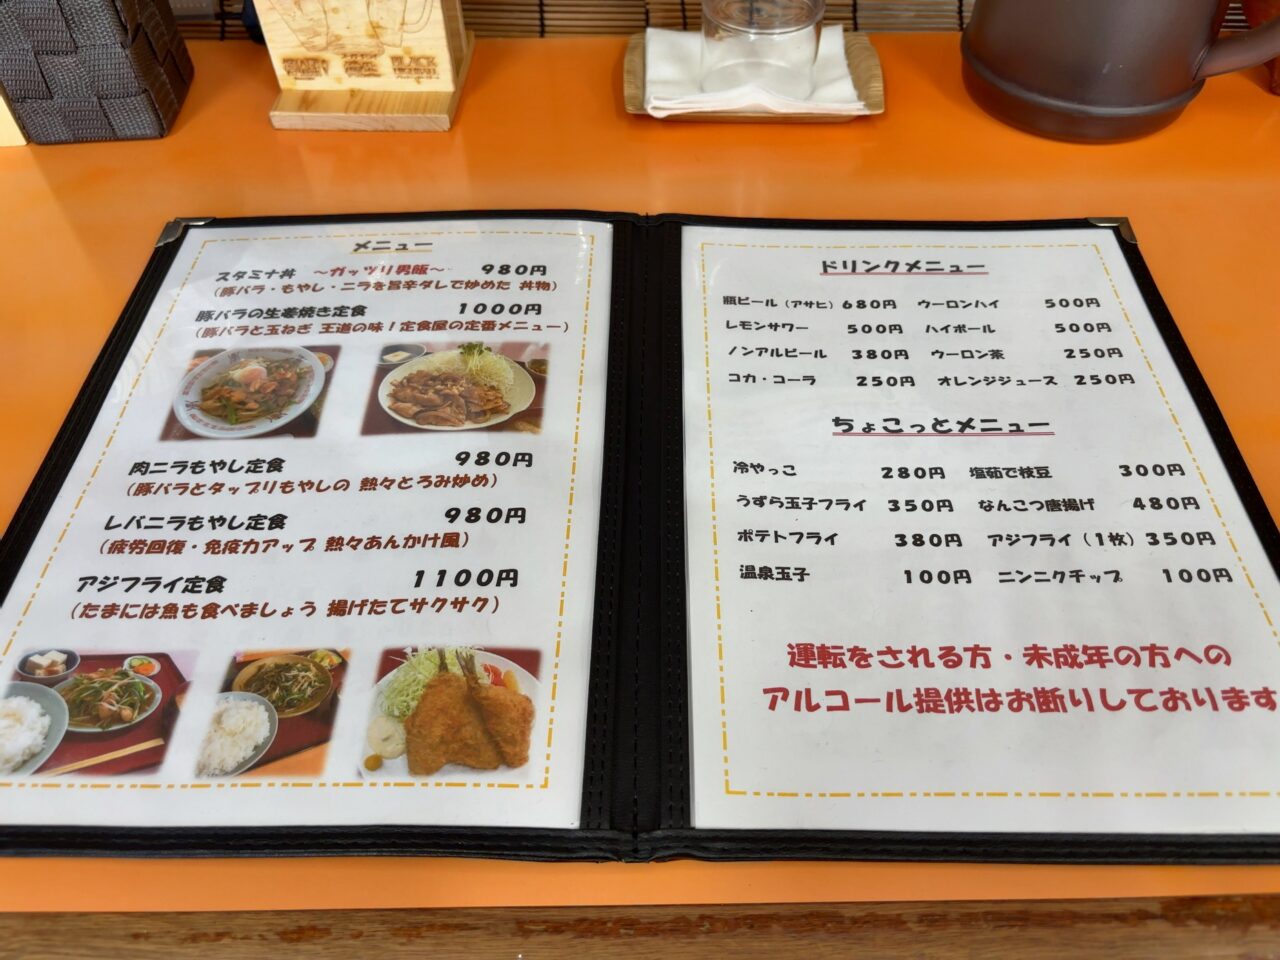 BLACK
メニュー
スタミナ丼 〜ガッツリ男飯〜 980円
（豚バラ・もやし・ニラを旨辛ダレで炒めた 丼物）
豚バラの生姜焼き定食 1000円
（豚バラと玉ねぎ 王道の味！定食屋の定番メニュー）
肉ニラもやし定食 980円
（豚バラとタップリもやしの 熱々とろみ炒め）
レバニラもやし定食 980円
（疲労回復・免疫力アップ 熱々あんかけ風）
アジフライ定食 1100円
（たまには魚も食べましょう 揚げたてサクサク）
ドリンクメニュー
瓶ビール（アサヒ）680円 ウーロンハイ 500円
レモンサワー 500円 ハイボール 500円
ノンアルビール 380円 ウーロン茶 250円
コカ・コーラ 250円 オレンジジュース 250円
ちょこっとメニュー
冷やっこ 280円 塩茹で枝豆 300円
うずら玉子フライ 350円 なんこつ唐揚げ 480円
ポテトフライ 380円 アジフライ（1枚）350円
温泉玉子 100円 ニンニクチップ 100円
運転をされる方・未成年の方への
アルコール提供はお断りしております